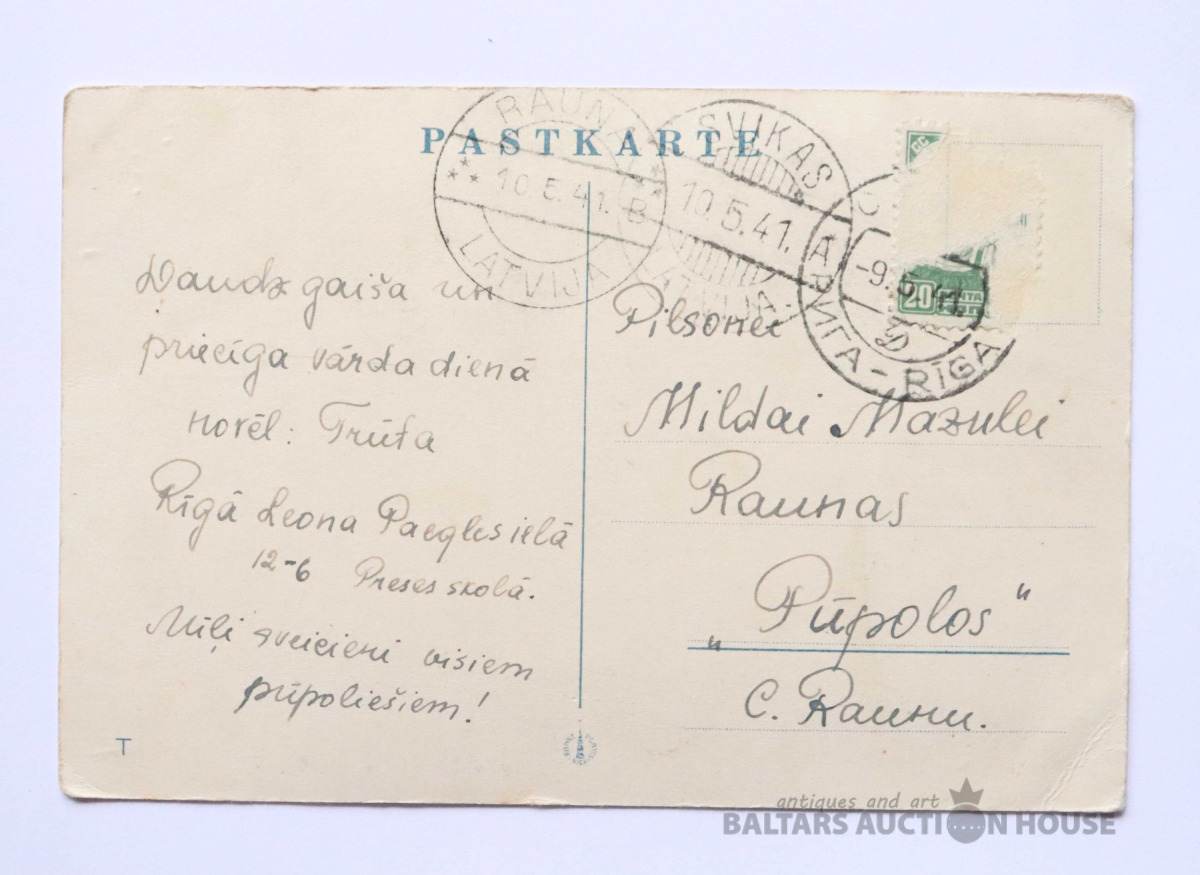 PASTKARTE
RAUNA
10.5.41. B
LATVIJA
SVIKAS
10.5.41.
LATVIJA
РИГА - RĪGA
-9.5.41.
20
Daudz gaiša un
priecīga vārda dienā
novēl: Trūta
Rīgā Leona Paegles ielā
12-6 Preses skolā.
Mīļi sveicieni visiem
pūpoliešiem!
Pilsonei
Mildai Mazulei
Raunas
„Pūpolos"
c. Raunu.
T
antiques and art
BALTARS AUCTION HOUSE